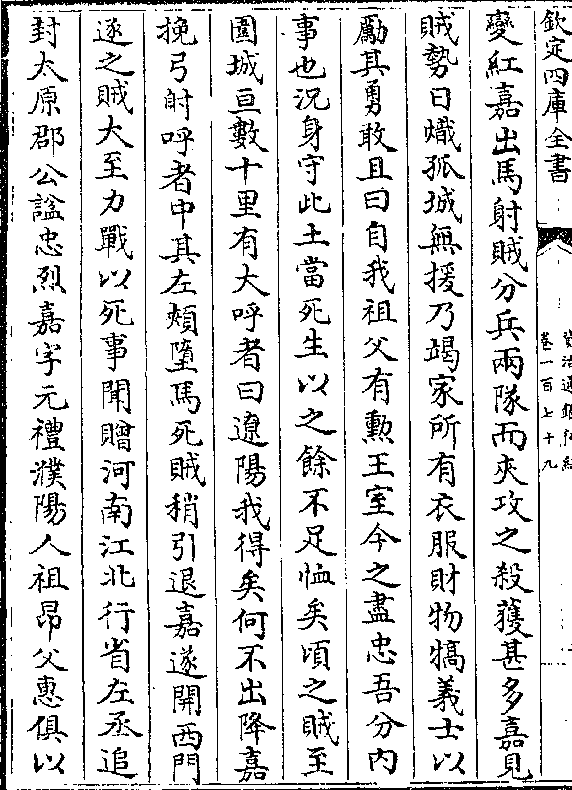 欽定四庫全書
卷一百七十九
變紅嘉出馬射賊分兵兩隊而夾攻之殺獲甚多嘉見
賊勢日熾孤城無援乃竭家所有衣服財物犒義士以
勵其勇敢且曰自我祖父有勲王室今之盡忠吾分內
事也況身守此土當死生以之餘不足恤矣頃之賊至
圍城亘數十里有大呼者曰遼陽我得矣何不出降嘉
挽弓射呼者中其左頰墮馬死賊稍引退嘉遂開西門
逐之賊大至力戰以死事聞贈河南江北行省左丞追
封太原郡公諡忠烈嘉字元禮濮陽人祖昂父惠俱以